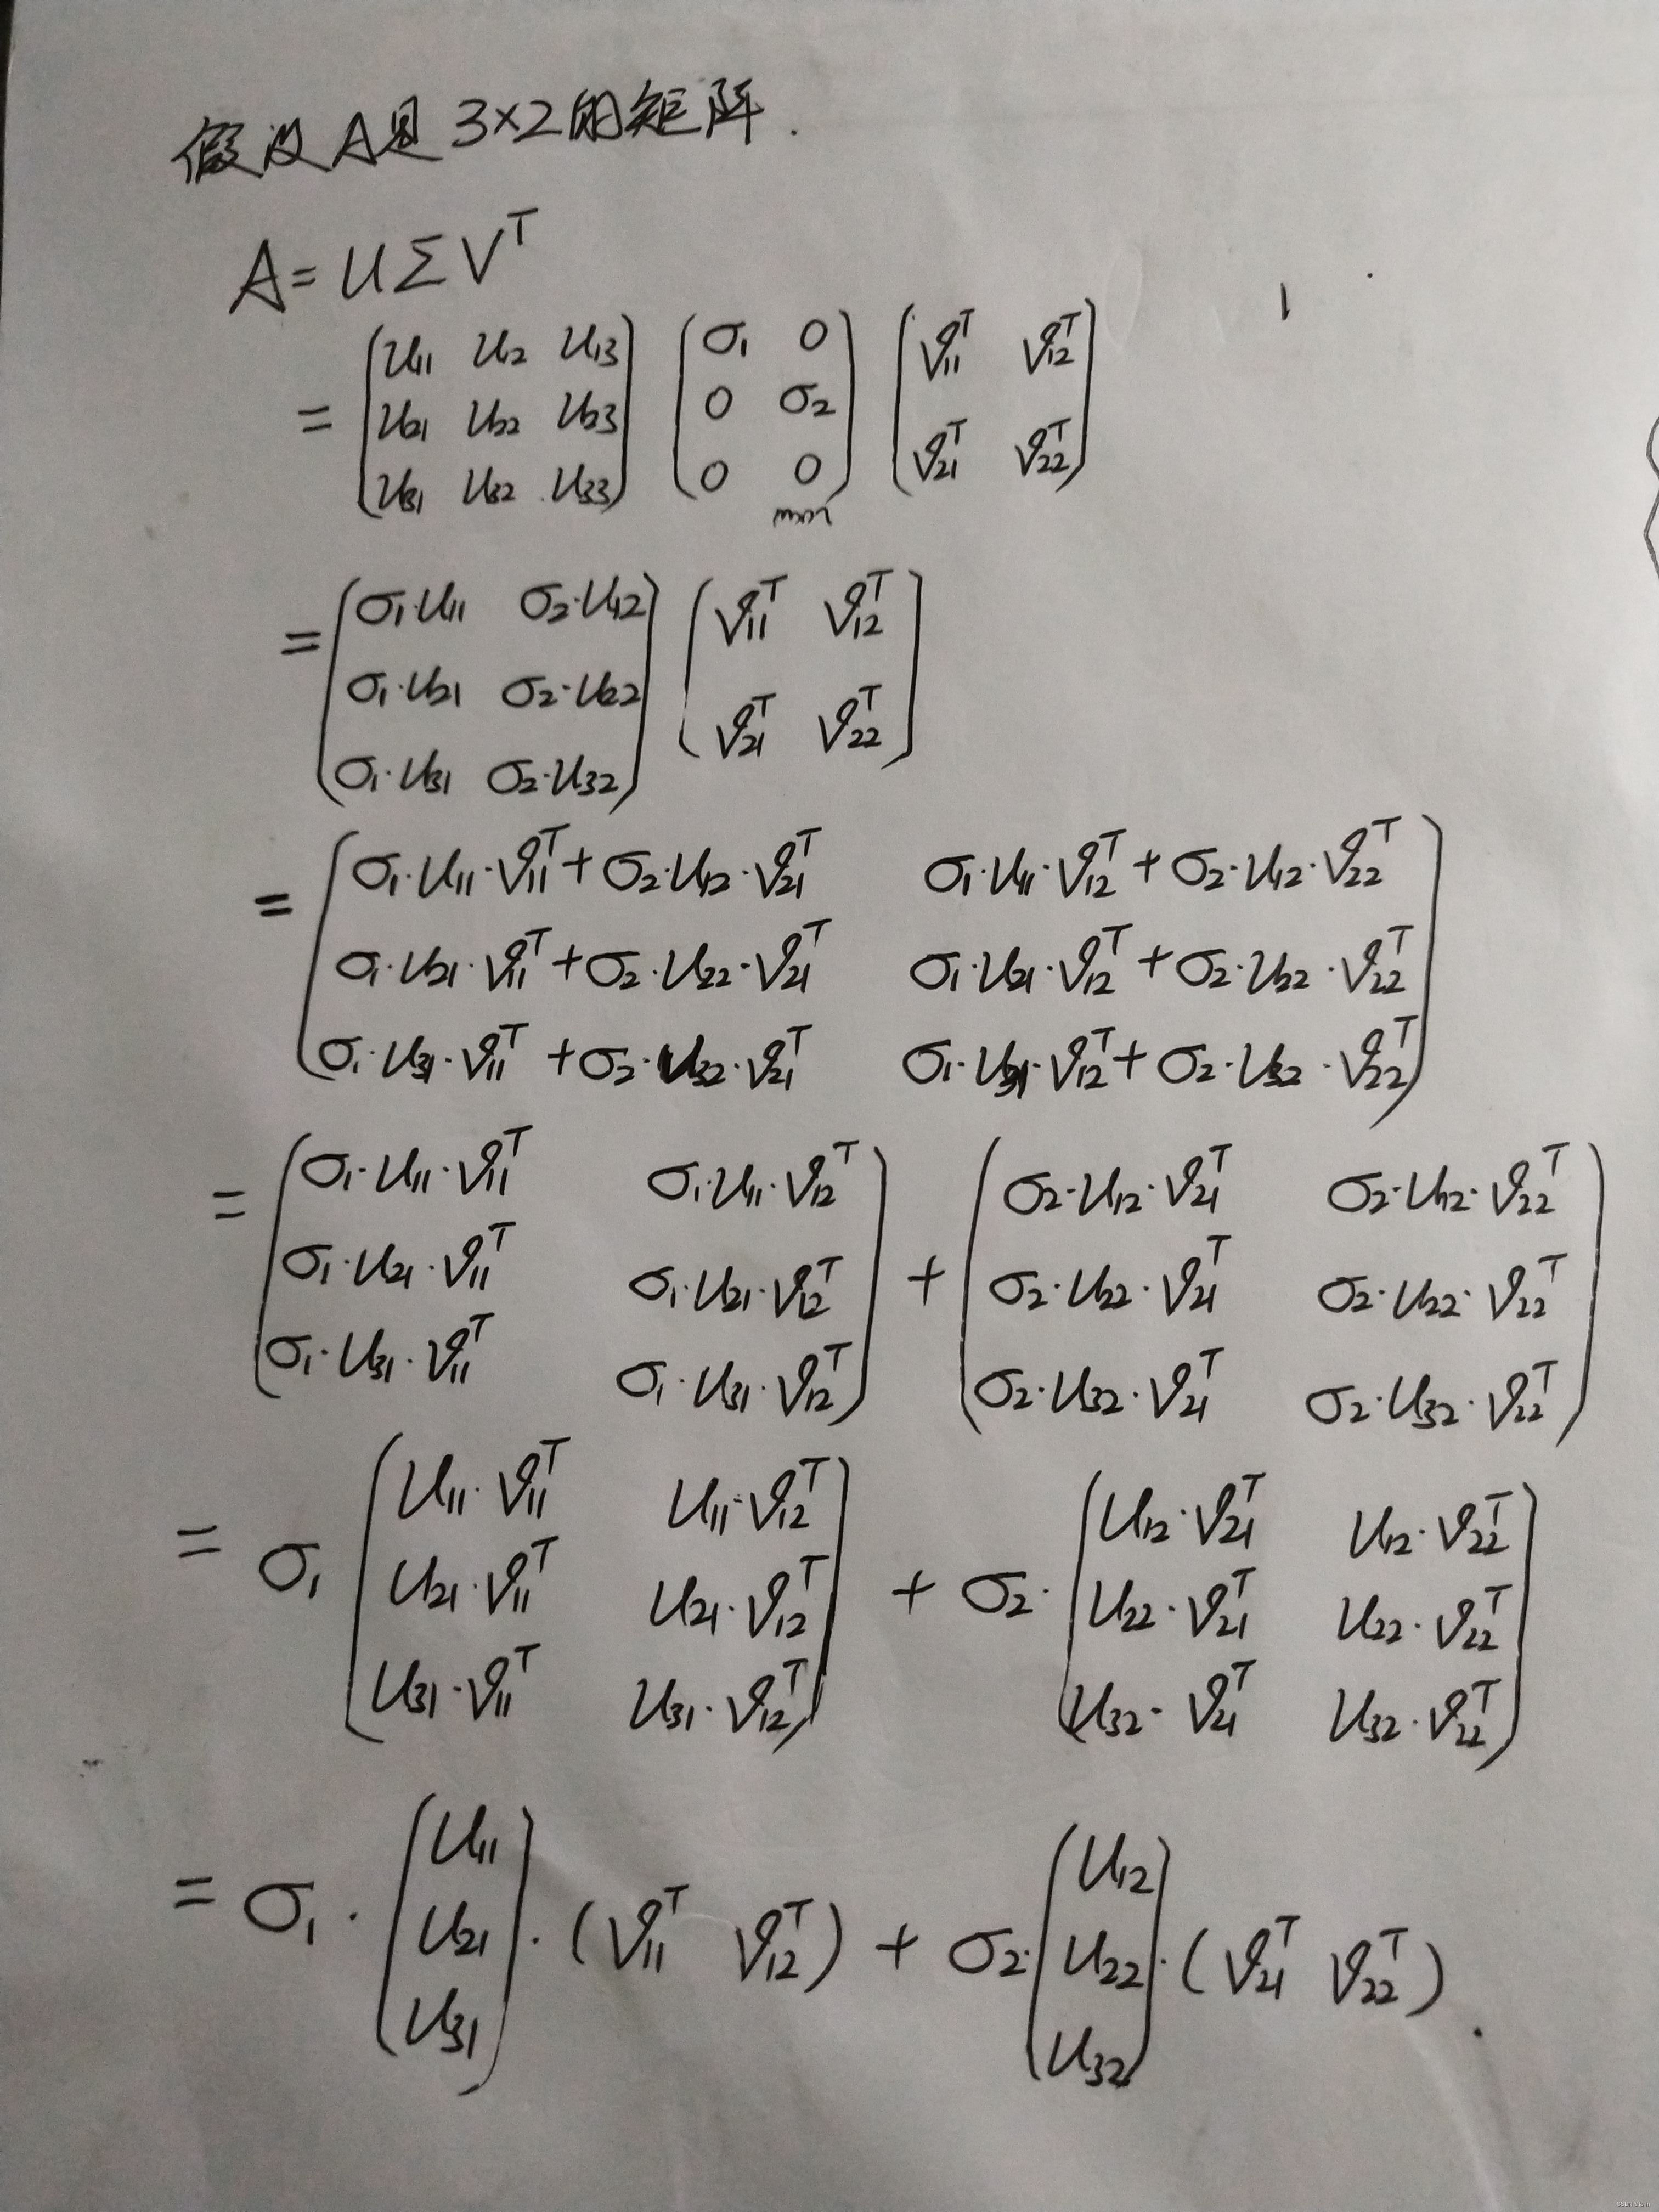 假设A是3×2的矩阵.
A = UΣV^T
= (u11 u12 u13; u21 u22 u23; u31 u32 u33) (σ1 0; 0 σ2; 0 0) (v11^T v12^T; v21^T v22^T)
= (σ1·u11 σ2·u12; σ1·u21 σ2·u22; σ1·u31 σ2·u32) (v11^T v12^T; v21^T v22^T)
= (σ1·u11·v11^T+σ2·u12·v21^T σ1·u11·v12^T+σ2·u12·v22^T; σ1·u21·v11^T+σ2·u22·v21^T σ1·u21·v12^T+σ2·u22·v22^T; σ1·u31·v11^T+σ2·u32·v21^T σ1·u31·v12^T+σ2·u32·v22^T)
= (σ1·u11·v11^T σ1·u11·v12^T; σ1·u21·v11^T σ1·u21·v12^T; σ1·u31·v11^T σ1·u31·v12^T) + (σ2·u12·v21^T σ2·u12·v22^T; σ2·u22·v21^T σ2·u22·v22^T; σ2·u32·v21^T σ2·u32·v22^T)
= σ1 (u11·v11^T u11·v12^T; u21·v11^T u21·v12^T; u31·v11^T u31·v12^T) + σ2· (u12·v21^T u12·v22^T; u22·v21^T u22·v22^T; u32·v21^T u32·v22^T)
= σ1·(u11; u21; u31)·(v11^T v12^T) + σ2·(u12; u22; u32)·(v21^T v22^T).